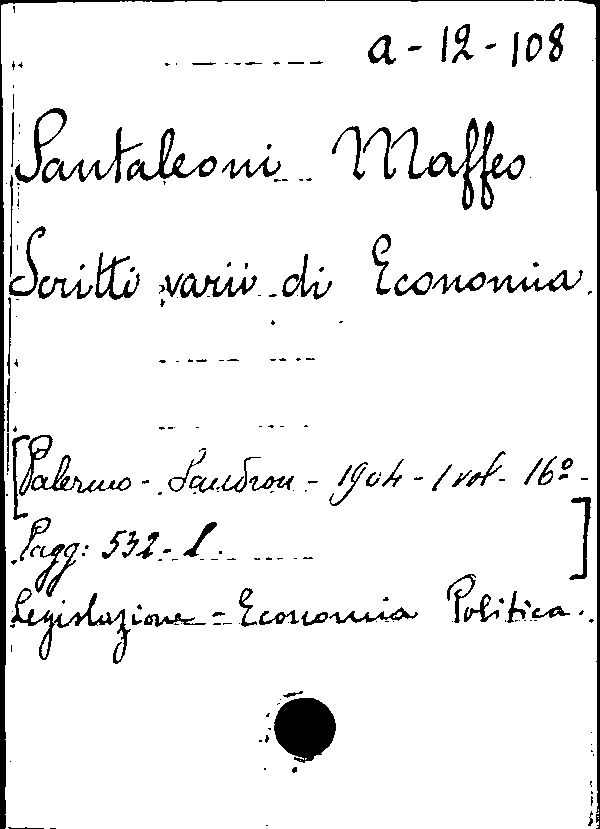 a-12-108
Pantaleoni Maffeo
Scritti varii di Economia.
[Palermo - Sandron - 1904 - 1 vol - 16º -
Pagg: 532 - L.]
Legislazione - Economia Politica.